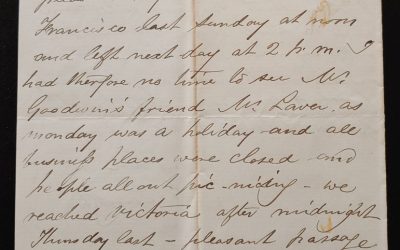 Francisco last Sunday at noon
and left next day at 2 p.m. I
had therefore no time to see Mr.
Goodwin's friend Mr. Laver. as
monday was a holiday and all
business places were closed and
people all out pic-nicing - we
reached Victoria after midnight
Thursday last - pleasant passage